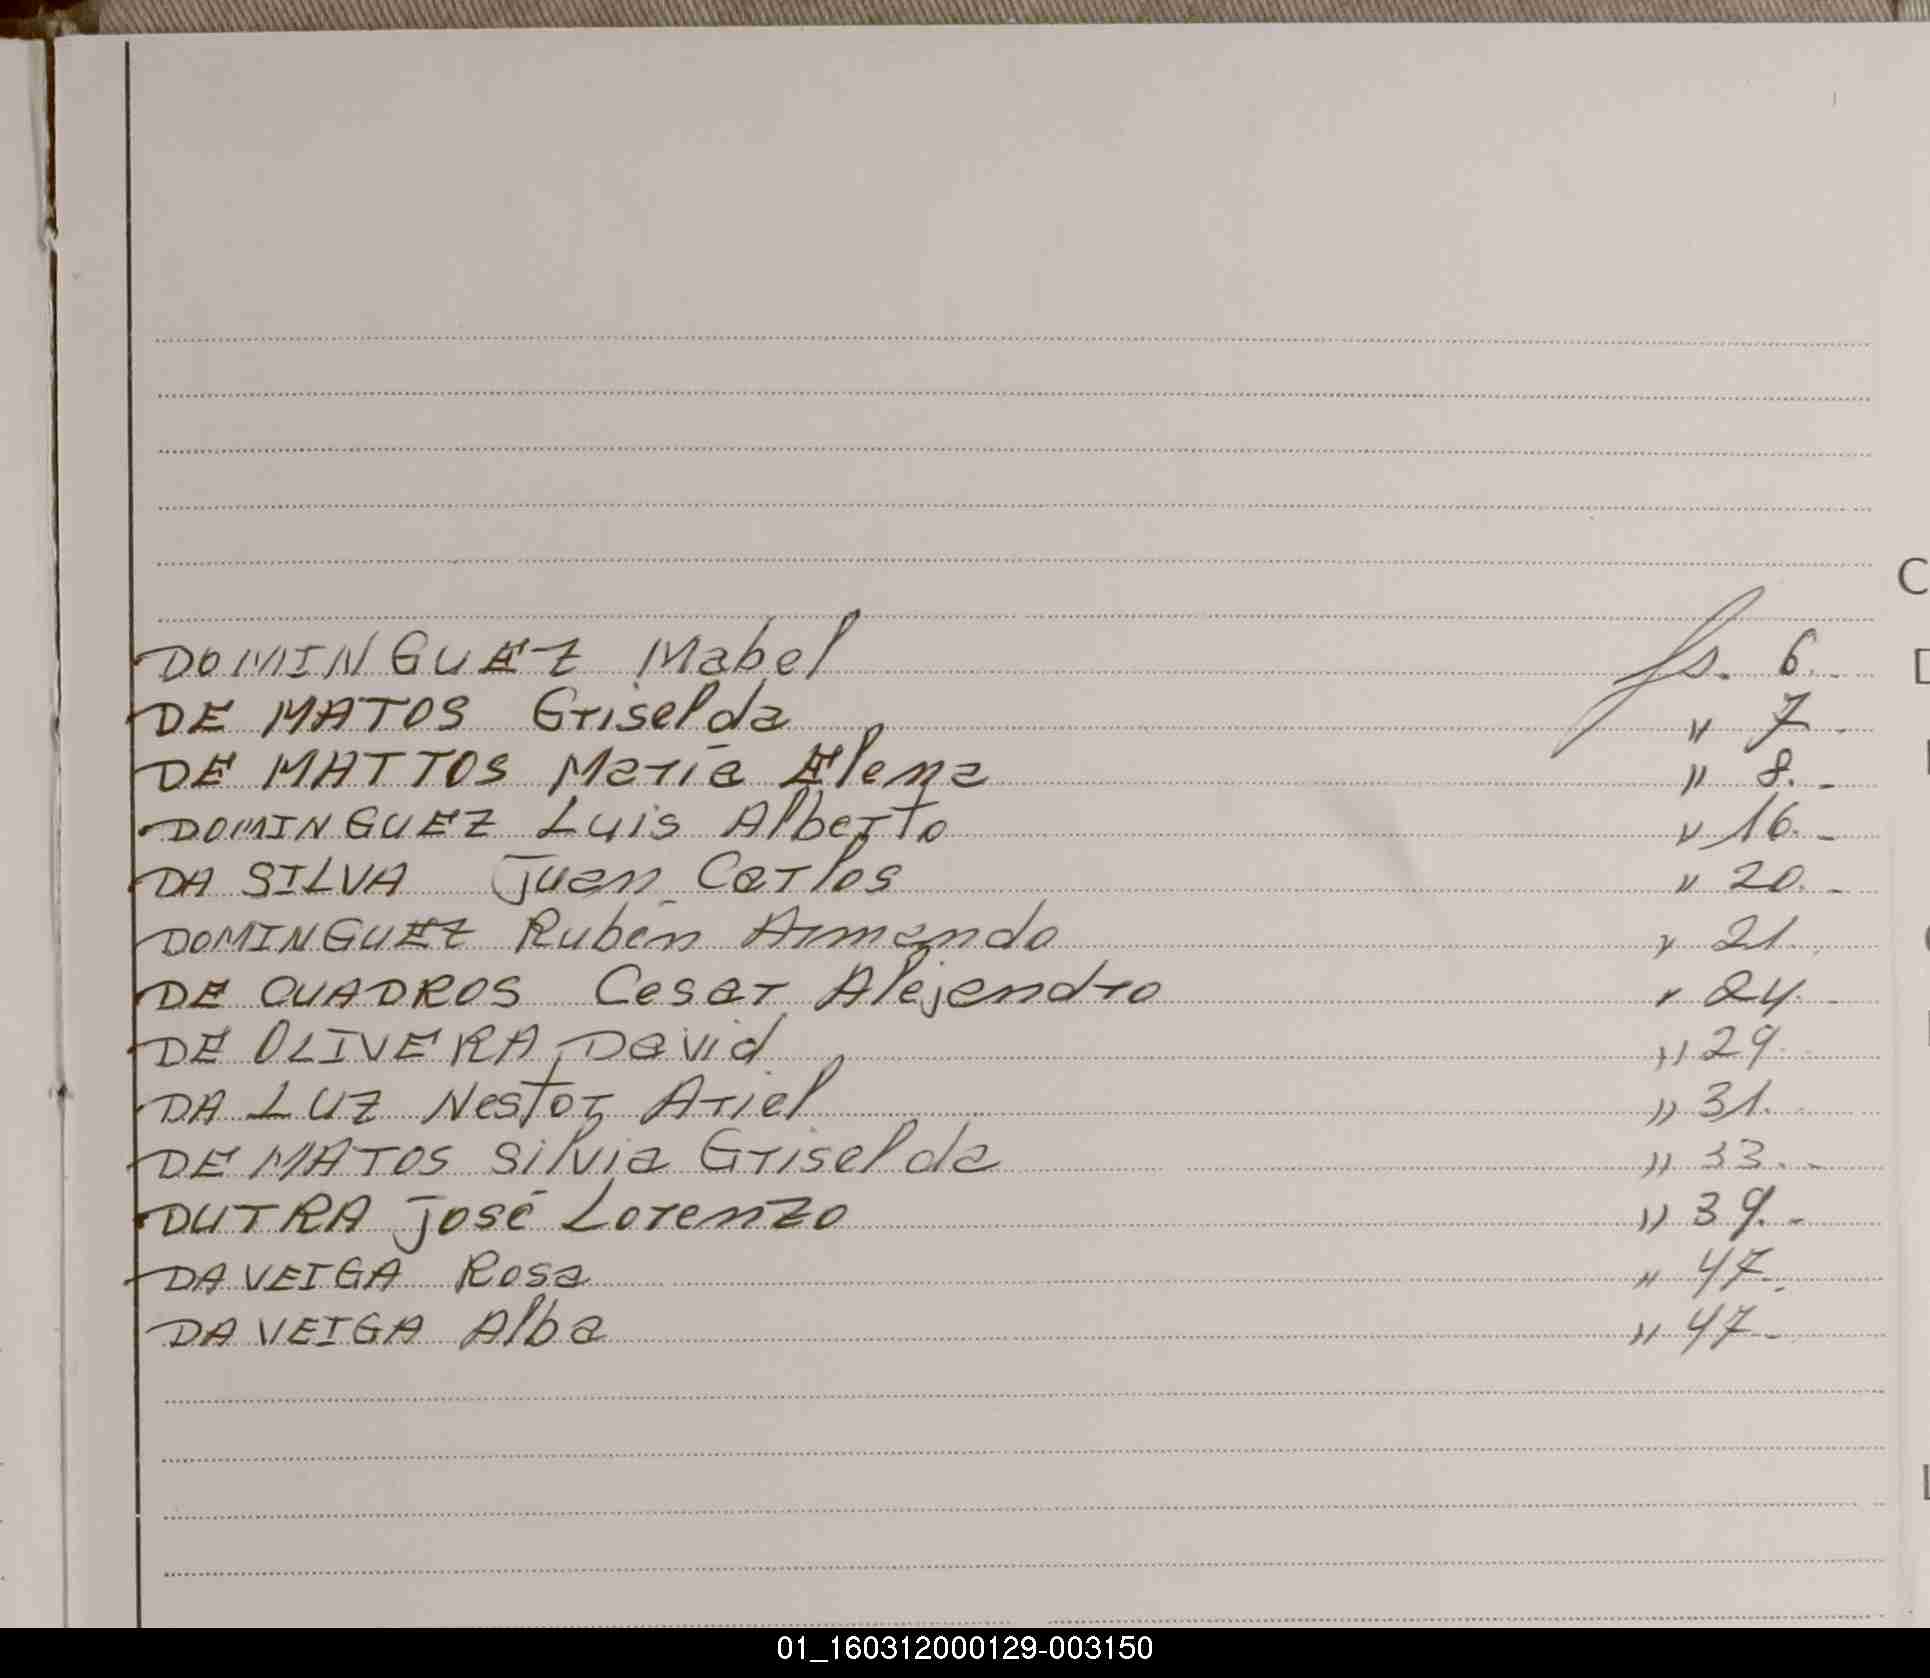 DOMINGUEZ Mabel fs. 6.-
DE MATOS Griselda " 7.-
DE MATTOS María Elena " 8.-
DOMINGUEZ Luis Alberto " 16.-
DA SILVA Juan Carlos " 20.-
DOMINGUEZ Rubén Armando " 21.-
DE QUADROS Cesar Alejandro " 24.-
DE OLIVERA David " 29.-
DA LUZ Nestor Ariel " 31.-
DE MATOS Silvia Griselda " 33.-
DUTRA José Lorenzo " 39.-
DA VEIGA Rosa " 47.-
DA VEIGA Alba " 47.-
01_160312000129-003150